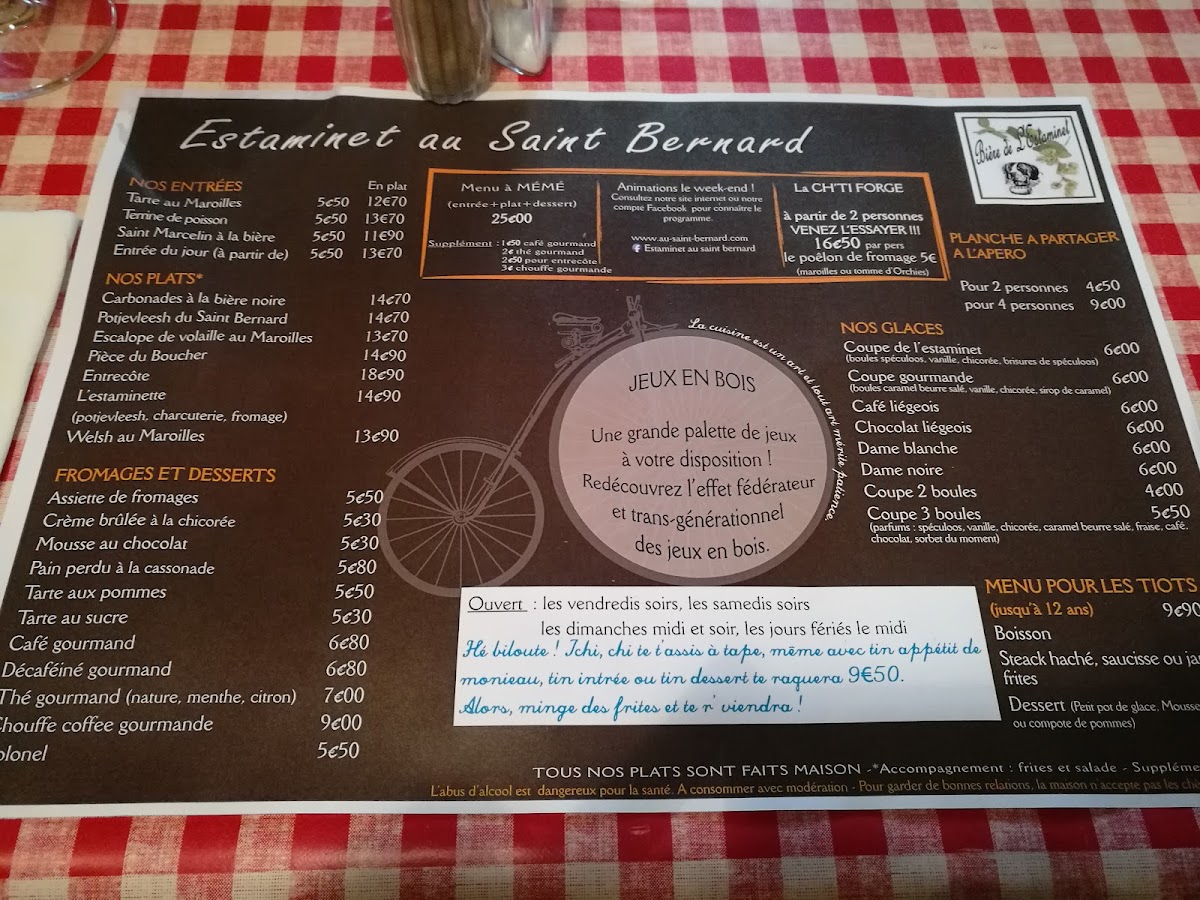 Estaminet au Saint Bernard
Bière de L'Estaminet
NOS ENTRÉES En plat
Tarte au Maroilles 5€50 12€70
Terrine de poisson 5€50 13€70
Saint Marcelin à la bière 5€50 11€90
Entrée du jour (à partir de) 5€50 13€70
NOS PLATS*
Carbonades à la bière noire 14€70
Potjevleesh du Saint Bernard 14€70
Escalope de volaille au Maroilles 13€70
Pièce du Boucher 14€90
Entrecôte 18€90
L'estaminette 14€90
(potjevleesh, charcuterie, fromage)
Welsh au Maroilles 13€90
FROMAGES ET DESSERTS
Assiette de fromages 5€50
Crème brûlée à la chicorée 5€30
Mousse au chocolat 5€30
Pain perdu à la cassonade 5€80
Tarte aux pommes 5€50
Tarte au sucre 5€30
Café gourmand 6€80
Décaféiné gourmand 6€80
Thé gourmand (nature, menthe, citron) 7€00
Chouffe coffee gourmande 9€00
olonel 5€50
Menu à MÉMÉ
(entrée+plat+dessert)
25€00
Supplément : 1€50 café gourmand
2€ thé gourmand
2€50 pour entrecôte
3€ chouffe gourmande
Animations le week-end !
Consultez notre site internet ou notre
compte Facebook pour connaître le
programme.
www.au-saint-bernard.com
f Estaminet au saint bernard
La CH'TI FORGE
à partir de 2 personnes
VENEZ L'ESSAYER !!!
16€50 par pers
le poêlon de fromage 5€
(maroilles ou tomme d'Orchies)
La cuisine est un art et tout art mérite patience.
JEUX EN BOIS
Une grande palette de jeux
à votre disposition !
Redécouvrez l'effet fédérateur
et trans-générationnel
des jeux en bois.
PLANCHE A PARTAGER
A L'APERO
Pour 2 personnes 4€50
pour 4 personnes 9€00
NOS GLACES
Coupe de l'estaminet 6€00
(boules spéculoos, vanille, chicorée, brisures de spéculoos)
Coupe gourmande 6€00
(boules caramel beurre salé, vanille, chicorée, sirop de caramel)
Café liégeois 6€00
Chocolat liégeois 6€00
Dame blanche 6€00
Dame noire 6€00
Coupe 2 boules 4€00
Coupe 3 boules 5€50
(parfums : spéculoos, vanille, chicorée, caramel beurre salé, fraise, café,
chocolat, sorbet du moment)
MENU POUR LES TIOTS
(jusqu'à 12 ans) 9€90
Boisson
Steack haché, saucisse ou ja
frites
Dessert (Petit pot de glace, Mousse
ou compote de pommes)
Ouvert : les vendredis soirs, les samedis soirs
les dimanches midi et soir, les jours fériés le midi
Hé biloute ! Ichi, chi te t'assis à tape, même avec tin appétit de
monieau, tin intrée ou tin dessert te raquera 9€50.
Alors, minge des frites et te r'viendra !
TOUS NOS PLATS SONT FAITS MAISON -*Accompagnement : frites et salade - Supplémen
L'abus d'alcool est dangereux pour la santé. A consommer avec modération - Pour garder de bonnes relations, la maison n'accepte pas les ch